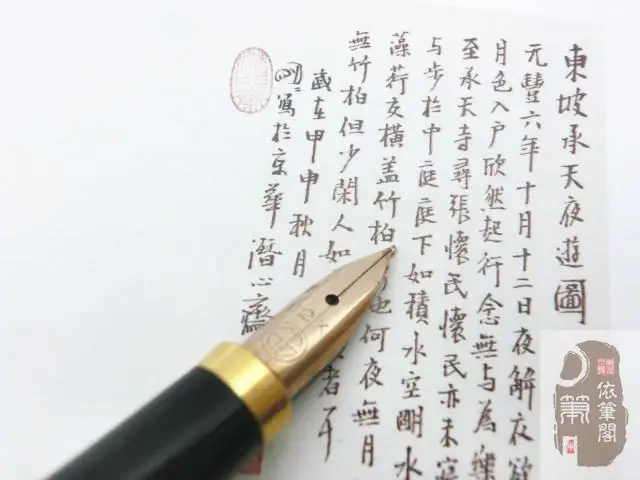 東坡承天夜遊圖
元豐六年十月十二日夜解夜欲
月色入户欣然起行念無与為樂
至承天寺尋張懷民懷民亦未寢
与步於中庭庭下如積水空明水
藻荇交橫盖竹柏也何夜無月
無竹柏但少閑人如者耳
歲在甲申秋月
寫於京華潛心齋
依筆閣